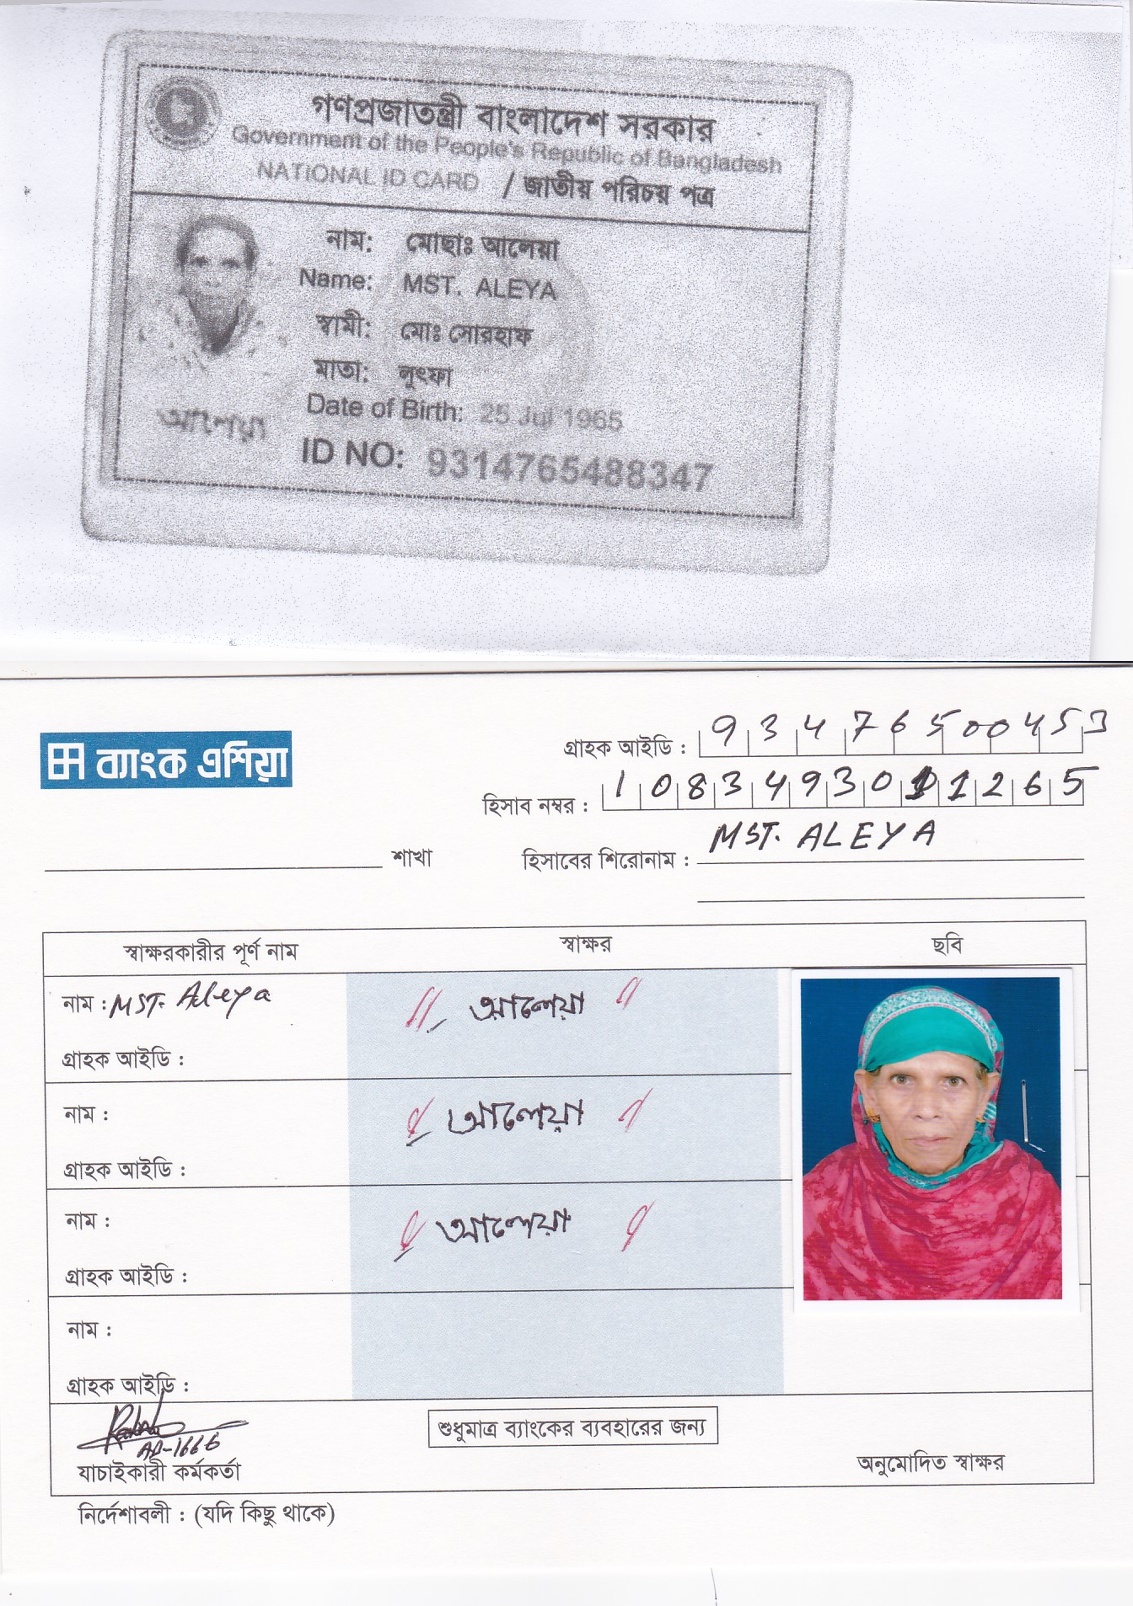 গণপ্রজাতন্ত্রী বাংলাদেশ সরকার
Government of the People's Republic of Bangladesh
NATIONAL ID CARD / জাতীয় পরিচয় পত্র
নাম: মোছাঃ আলেয়া
Name: MST. ALEYA
স্বামী: মোঃ সোরহাফ
মাতা: লুৎফা
Date of Birth: 25 Jul 1965
আলেয়া
ID NO: 9314765488347
ব্যাংক এশিয়া
গ্রাহক আইডি : 93476500453
হিসাব নম্বর : 1083493011265
শাখা
হিসাবের শিরোনাম : MST. ALEYA
স্বাক্ষরকারীর পূর্ণ নাম স্বাক্ষর ছবি
নাম : MST. Aleya আলেয়া
গ্রাহক আইডি :
নাম : আলেয়া
গ্রাহক আইডি :
নাম : আলেয়া
গ্রাহক আইডি :
নাম :
গ্রাহক আইডি :
AD-1666
শুধুমাত্র ব্যাংকের ব্যবহারের জন্য
যাচাইকারী কর্মকর্তা
অনুমোদিত স্বাক্ষর
নির্দেশাবলী : (যদি কিছু থাকে)